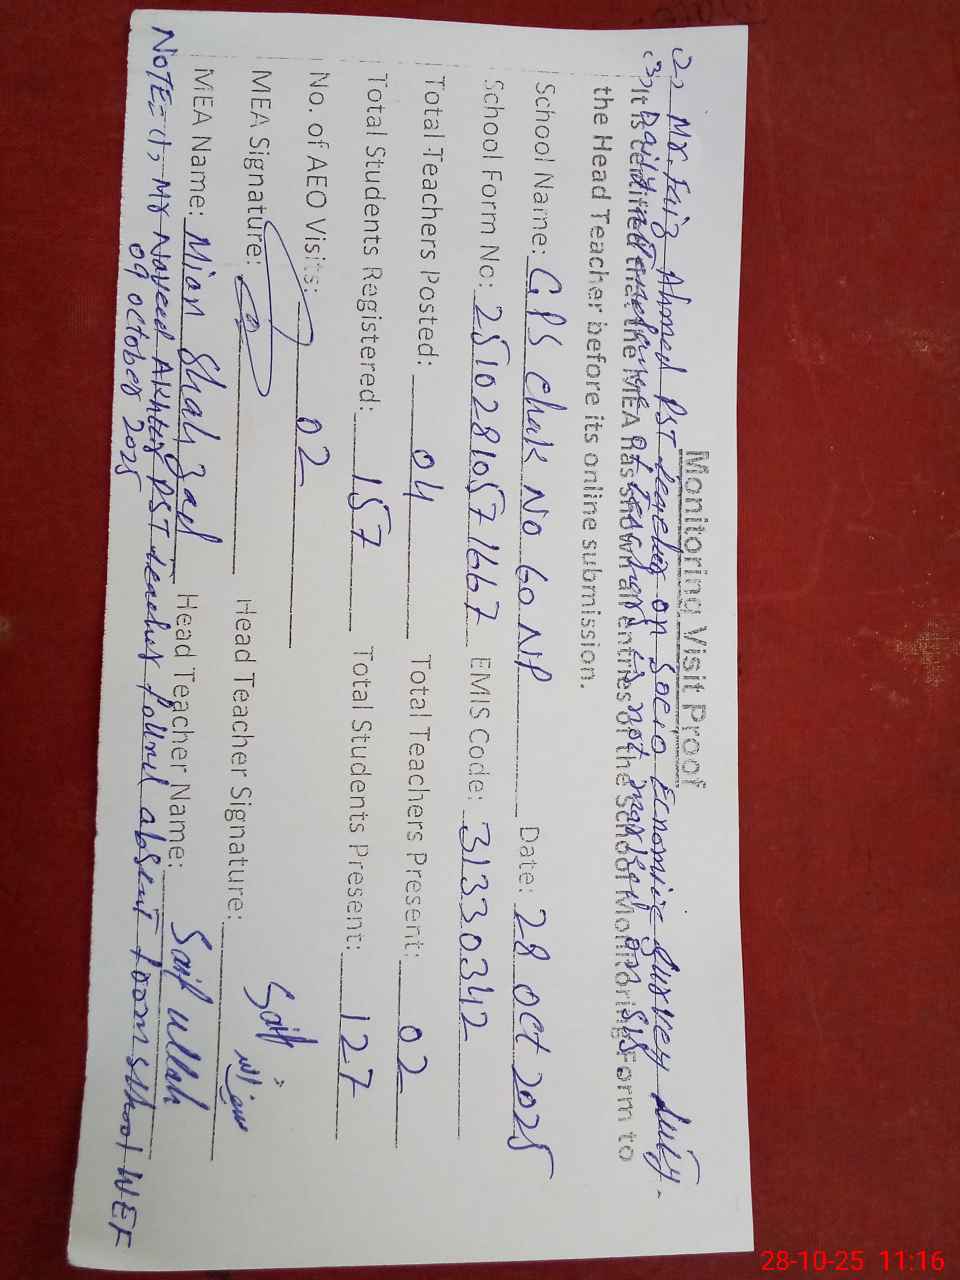 2, Mr. Faiz Ahmed PST teacher on Socio Ecnomic survey duty.
(3) Daily attendance of teachers is not marked on SIS
Monitoring Visit Proof
It is certified that the MEA has shown all entries of the School Monitoring Form to
the Head Teacher before its online submission.
School Name: GPS Chak No 60 NP Date: 28 Oct 2025
School Form No: 25102810571667 EMIS Code: 31330342
Total Teachers Posted: 04 Total Teachers Present: 02
Total Students Registered: 157 Total Students Present: 127
No. of AEO Visits: 02
MEA Signature: Head Teacher Signature: Saif
MEA Name: Mian Shah Zad Head Teacher Name: Saif Ullah
NOTE=(1), Mr Naveed Akhter PST teacher found absent from school WEF
09 october 2025
28-10-25 11:16